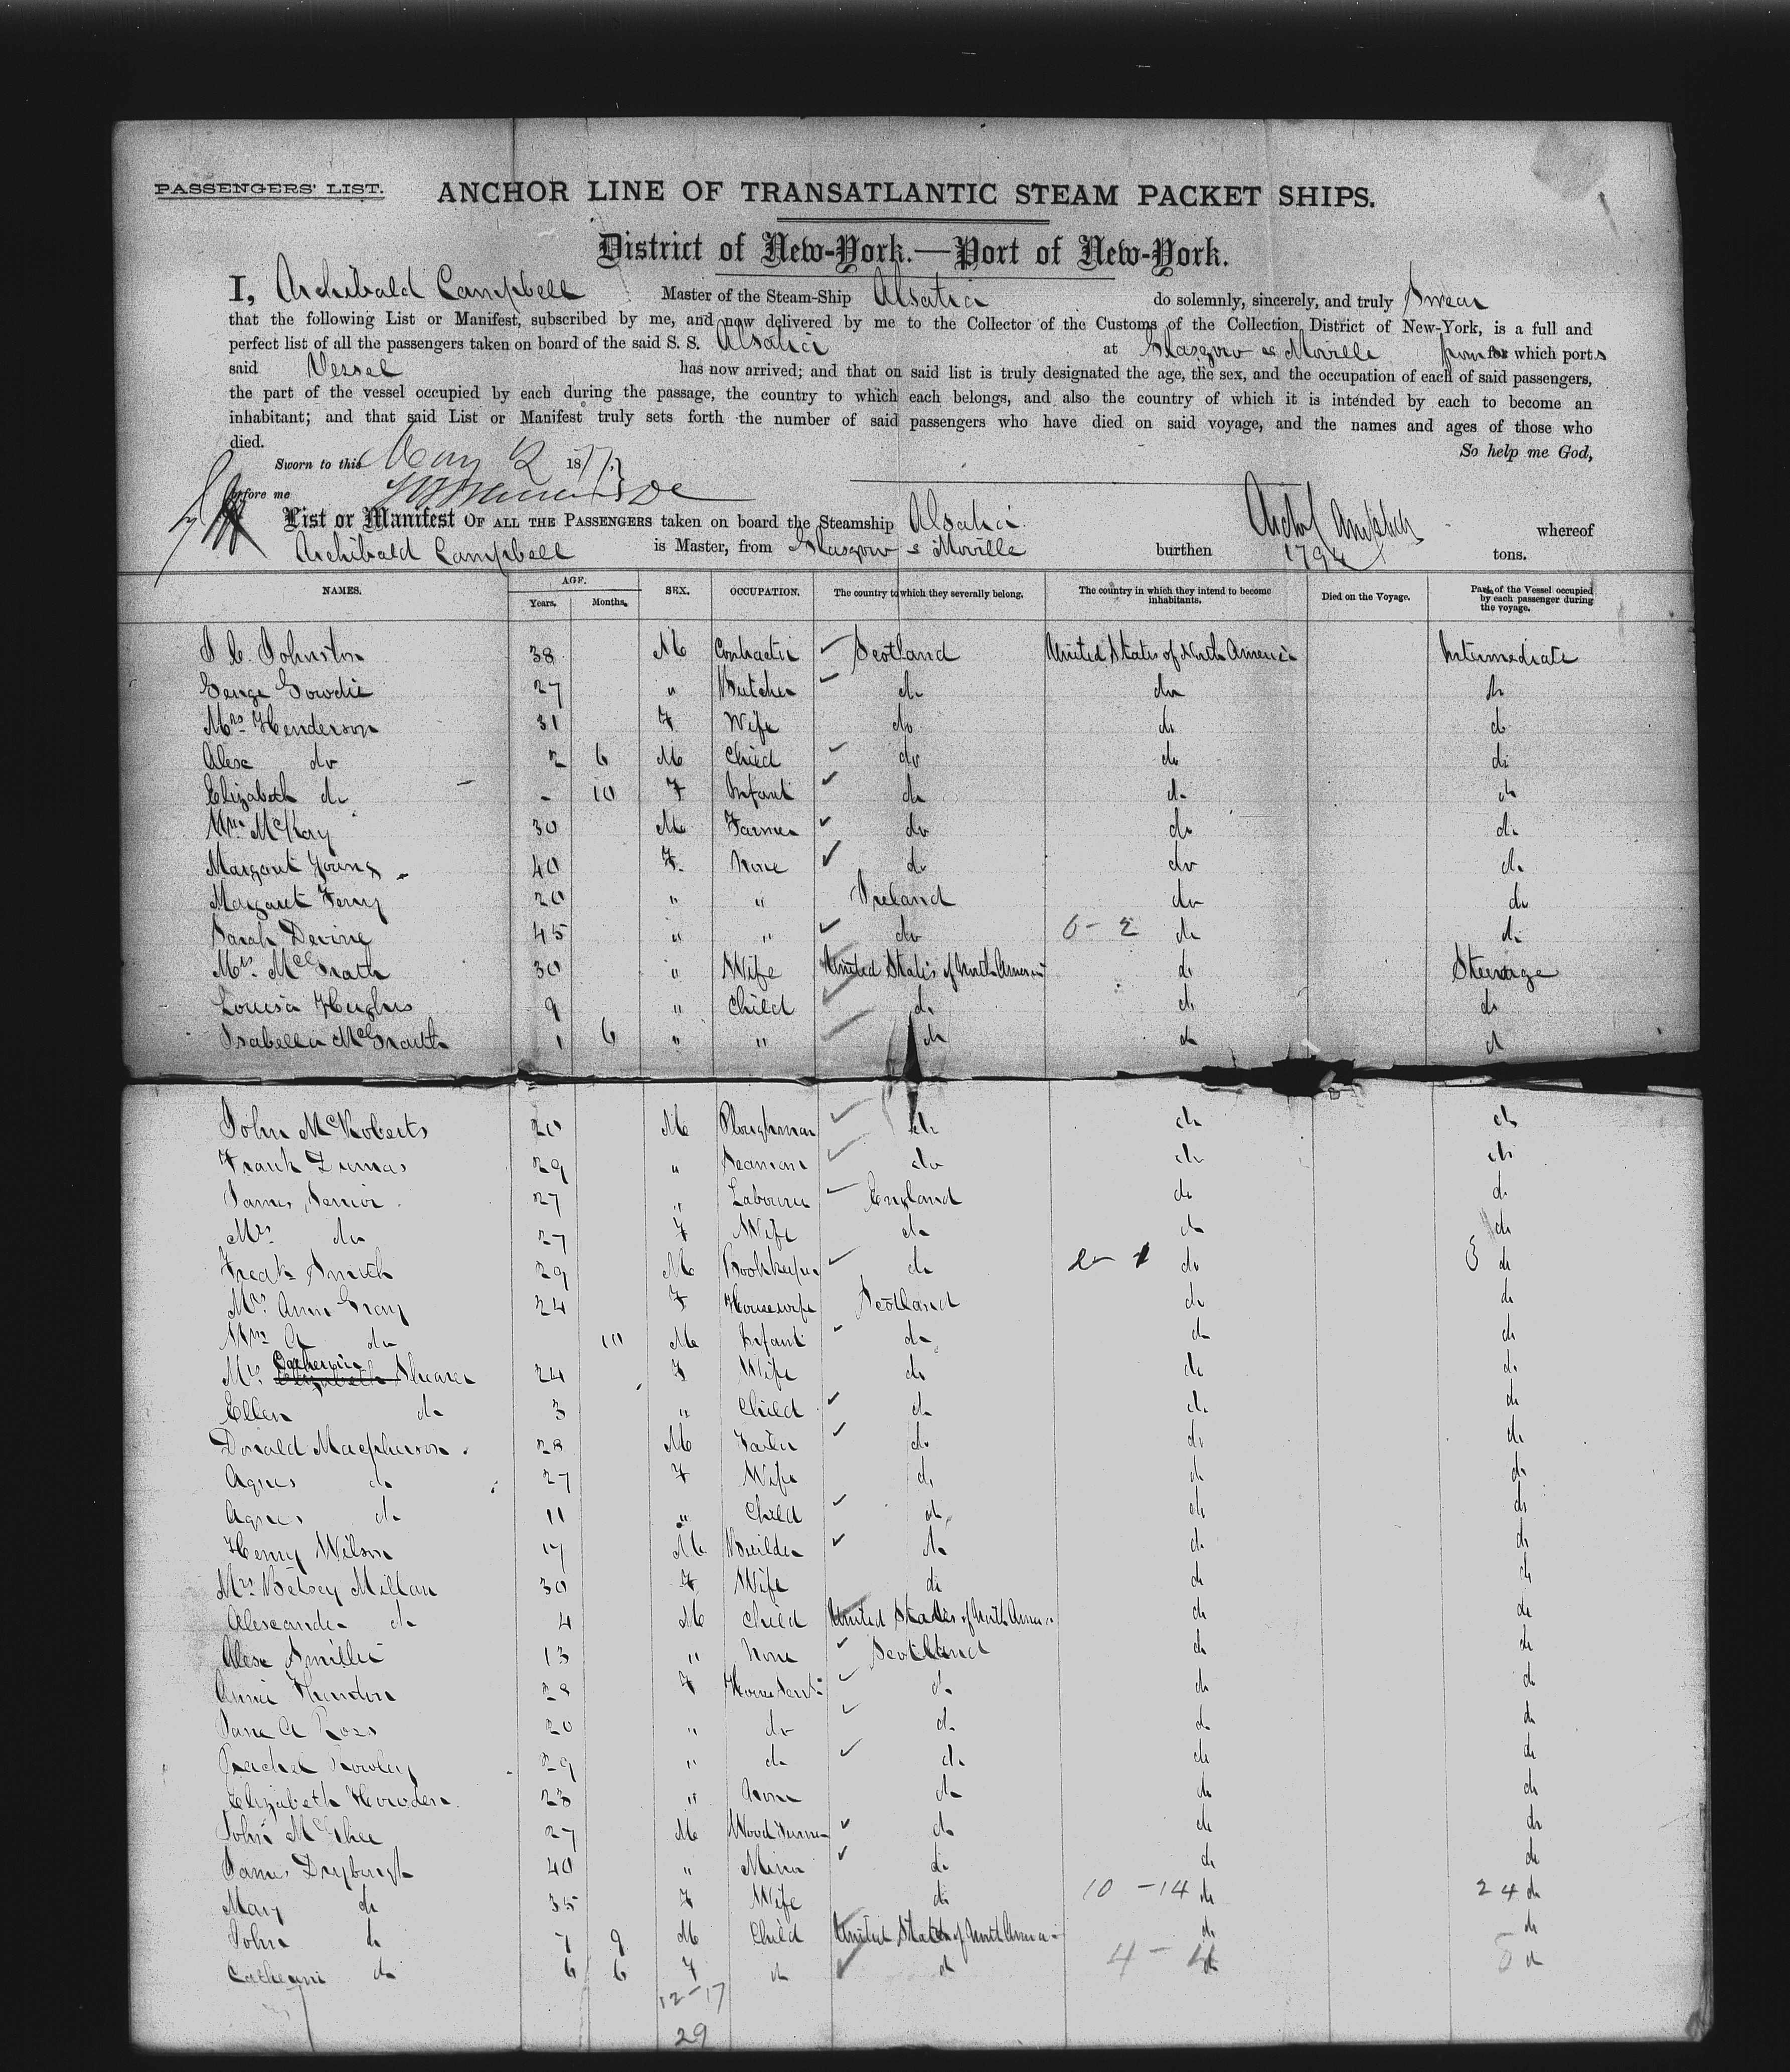 PASSENGERS' LIST.
ANCHOR LINE OF TRANSATLANTIC STEAM PACKET SHIPS.
District of New-York.—Port of New-York.
I, Archibald Campbell Master of the Steam-Ship Alsatia do solemnly, sincerely, and truly Swear
that the following List or Manifest, subscribed by me, and now delivered by me to the Collector of the Customs of the Collection District of New-York, is a full and
perfect list of all the passengers taken on board of the said S. S. Alsatia at Glasgow & Moville from which ports
said Vessel has now arrived; and that on said list is truly designated the age, the sex, and the occupation of each of said passengers,
the part of the vessel occupied by each during the passage, the country to which each belongs, and also the country of which it is intended by each to become an
inhabitant; and that said List or Manifest truly sets forth the number of said passengers who have died on said voyage, and the names and ages of those who
died.
So help me God,
Sworn to this May 12 1877.
before me
List or Manifest OF ALL THE PASSENGERS taken on board the Steamship Alsatia whereof
Archibald Campbell is Master, from Glasgow & Moville burthen 1794 tons.
NAMES. AGE. Years. Months. SEX. OCCUPATION. The country to which they severally belong. The country in which they intend to become inhabitants. Died on the Voyage. Part of the Vessel occupied by each passenger during the voyage.
Johnston 38 M Contractor Scotland United States of North America Intermediate
George Gowdie 27 " Butcher do do do
Mrs. Henderson 31 F Wife do do do
Alexr do 2 6 M Child do do do
Elizabeth do - 10 F Infant do do do
Wm. McKay 30 M Farmer do do do
Margaret Young 40 F. None do do do
Margaret Ferry 20 " " Ireland do do
Sarah Devine 45 " " do 6 - 2 do do
Mrs. McGrath 30 " Wife United States of North America do Steerage
Louisa Hughes 9 " Child do do do
Isabella McGrath 1 6 " " do do do
John McRoberts 20 M Ploughman do do do
Frank 29 " Seaman do do do
James Senior 27 " Labourer England do do
Mrs do 27 F Wife do do do
Fredk Smith 29 M Bookkeeper do do do
Mrs Annie Gray 24 F Housewife Scotland do do
Wm. do 10 M Infant do do do
Mrs. Catherine Shearer 24 F Wife do do do
Ellen do 3 " Child do do do
Donald Macpherson 28 M Tailor do do do
Agnes do 27 F Wife do do do
Agnes do 11 " Child do do do
Henry Wilson 17 M Builder do do do
Mrs Betsey Millan 30 F Wife do do do
Alexander do 4 M Child United States of North America do do
Alexr Smillie 13 " None Scotland do do
Annie 28 F House Servt do do do
Jane A Ross 20 " do do do do
Rachel 29 " do do do do
Elizabeth Howden 23 " None do do do
John McGhee 27 M Wood Turner do do do
James Dryburgh 40 " Miner do do do
Mary do 35 F Wife do 10 - 14 do 24 do
John do 7 9 M Child United States of North America do do
Catherine do 6 6 F do do 4 - 4 do 8 do
12 - 17
29